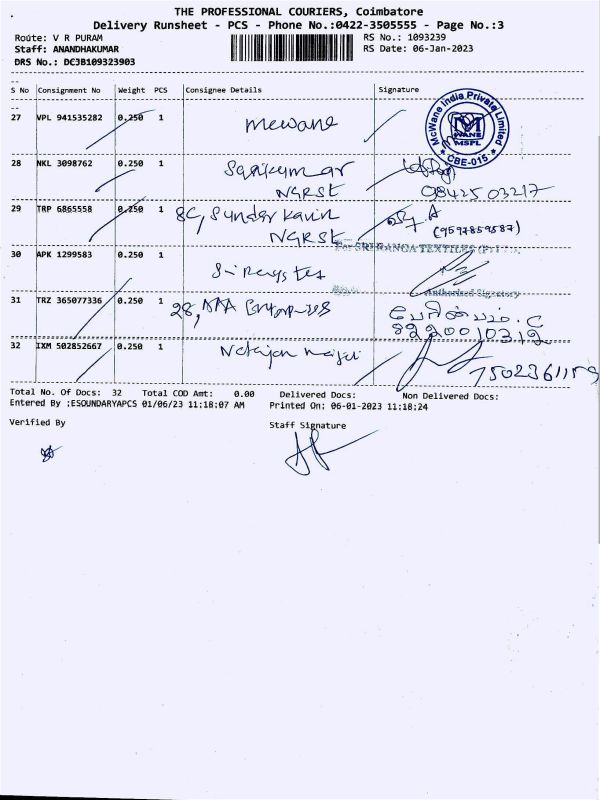 THE PROFESSIONAL COURIERS, Coimbatore
Delivery Runsheet - PCS - Phone No.:0422-3505555 - Page No.:3
Route: V R PURAM
RS No.: 1093239
Staff: ANANDHAKUMAR
RS Date: 06-Jan-2023
DRS No.: DCJB109323903
S No Consignment No Weight PCS Consignee Details Signature
27 VPL 941535282 0.250 1 mcwane
McWane India Private Limited
MWANE
MSPL
* CBE-015 *
28 NKL 3098762 0.250 1 Sasikumar
NGRST
98425 03217
29 TRP 6865558 0.250 1 8C, Sundar Kavin
NGRST
A
(9597859587)
For SRI RANGA TEXTILES (P)
30 APK 1299583 0.250 1
Authorised Signatory
31 TRZ 365077336 0.250 1 28,
8220010312
32 IXM 502852667 0.250 1
7502361159
Total No. Of Docs: 32 Total COD Amt: 0.00 Delivered Docs: Non Delivered Docs:
Entered By :ESOUNDARYAPCS 01/06/23 11:18:07 AM Printed On: 06-01-2023 11:18:24
Verified By
Staff Signature